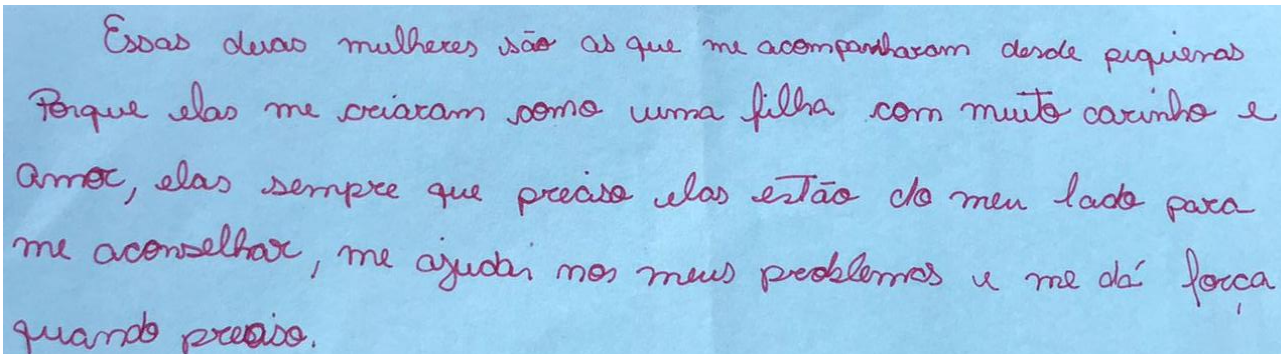 Essas duas mulheres são as que me acompanharam desde piquienas
Porque elas me criaram como uma filha com muito carinho e
amor, elas sempre que preciso elas estão do meu lado para
me aconselhar, me ajudar nos meus problemas e me dá força
quando preciso.